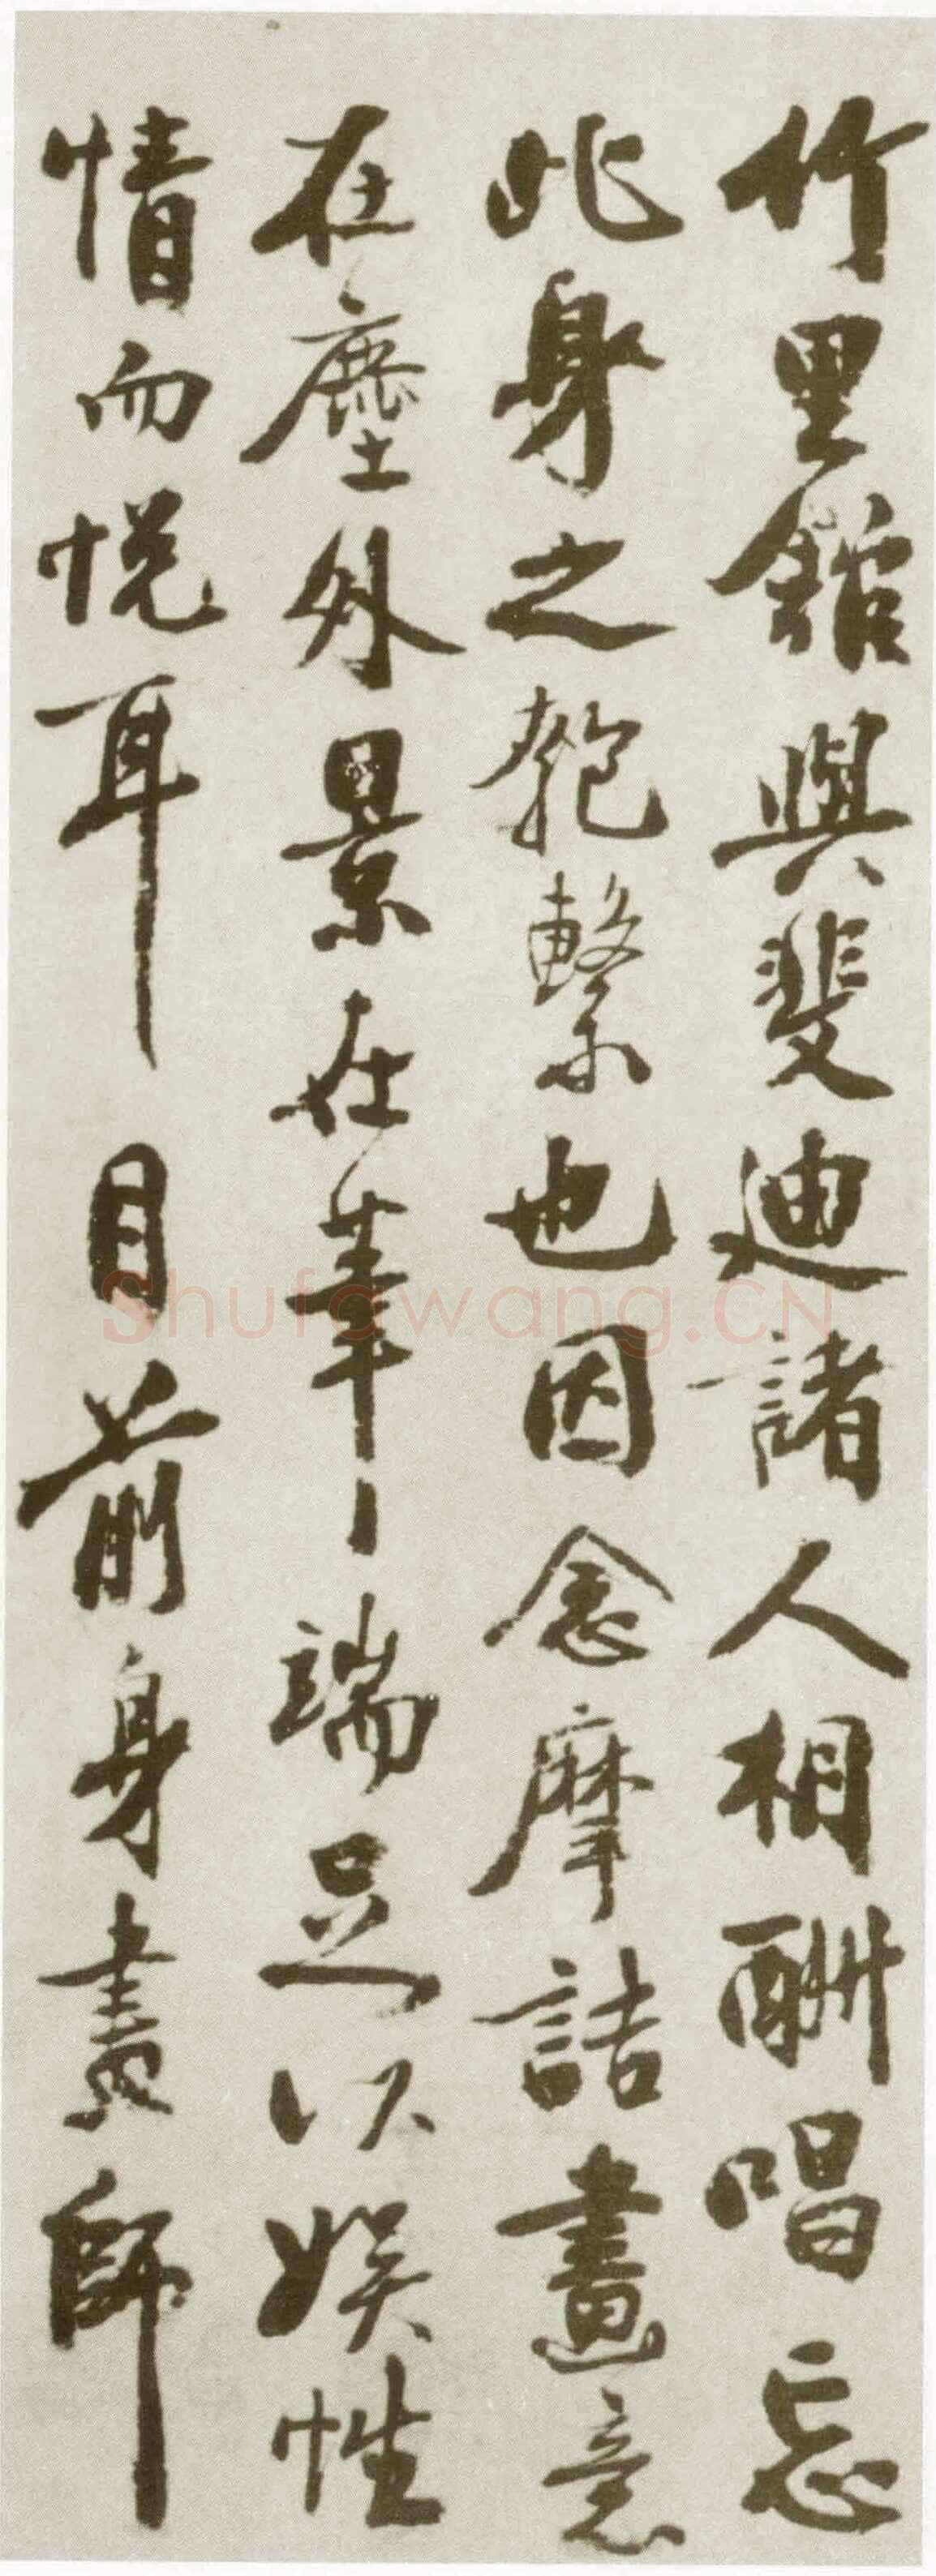 竹里館與斐迪諸人相酬唱忘
此身之匏繫也因念摩詰畫意
在塵外景在筆端足以娛性
情而悦耳目前身畫師
Shufawang.CN